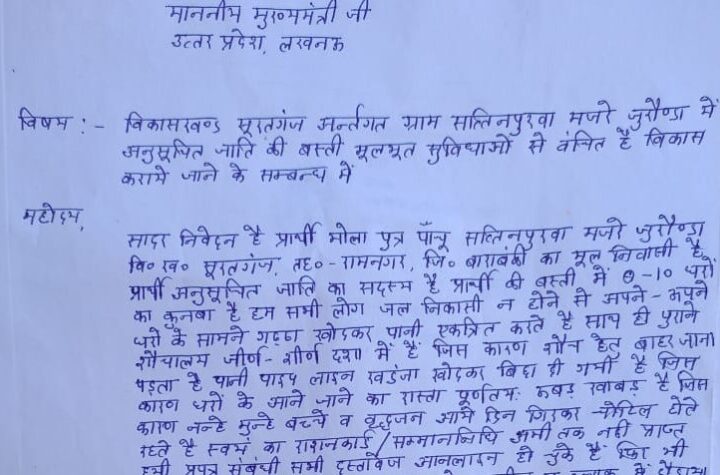 माननीय मुख्यमंत्री जी
उत्तर प्रदेश, लखनऊ
विषय :- विकासखण्ड सूरतगंज अर्न्तगत ग्राम सल्तिनपुरवा मजरे जुरौण्डा में
अनुसूचित जाति की बस्ती मूलभूत सुविधाओं से वंचित है विकास
कराये जाने के सम्बन्ध में
महोदय,
सादर निवेदन है प्रार्थी भोला पुत्र पाँचू सल्तिनपुरवा मजरे जुरौण्डा
वि० ख० सूरतगंज, तह०- रामनगर, जि० बाराबंकी का मूल निवासी है
प्रार्थी अनुसूचित जाति का सदस्य है प्रार्थी की बस्ती में 8-10 घरों
का कुनबा है हम सभी लोग जल निकासी न होने से अपने-अपने
घरों के सामने गड्ढा खोदकर पानी एकत्रित करते है साथ ही पुराने
शौचालय जीर्ण-शीर्ण दशा में है जिस कारण शौच हेतु बाहर जाना
पड़ता है पानी पाइप लाइन खडंजा खोदकर बिछा दी गयी है जिस
कारण घरों के आने जाने का रास्ता पूर्णतयः ऊबड़ खाबड़ है जिस
कारण नन्हे मुन्हे बच्चे व वृद्धजन आये दिन गिरकर चोटिल होते
रहते है स्वयं का राशनकार्ड/सम्माननिधि अभी तक नही प्राप्त
सभी प्रपत्र संबंधी सभी दस्तावेज आनलाइन हो चुके है फिर भी